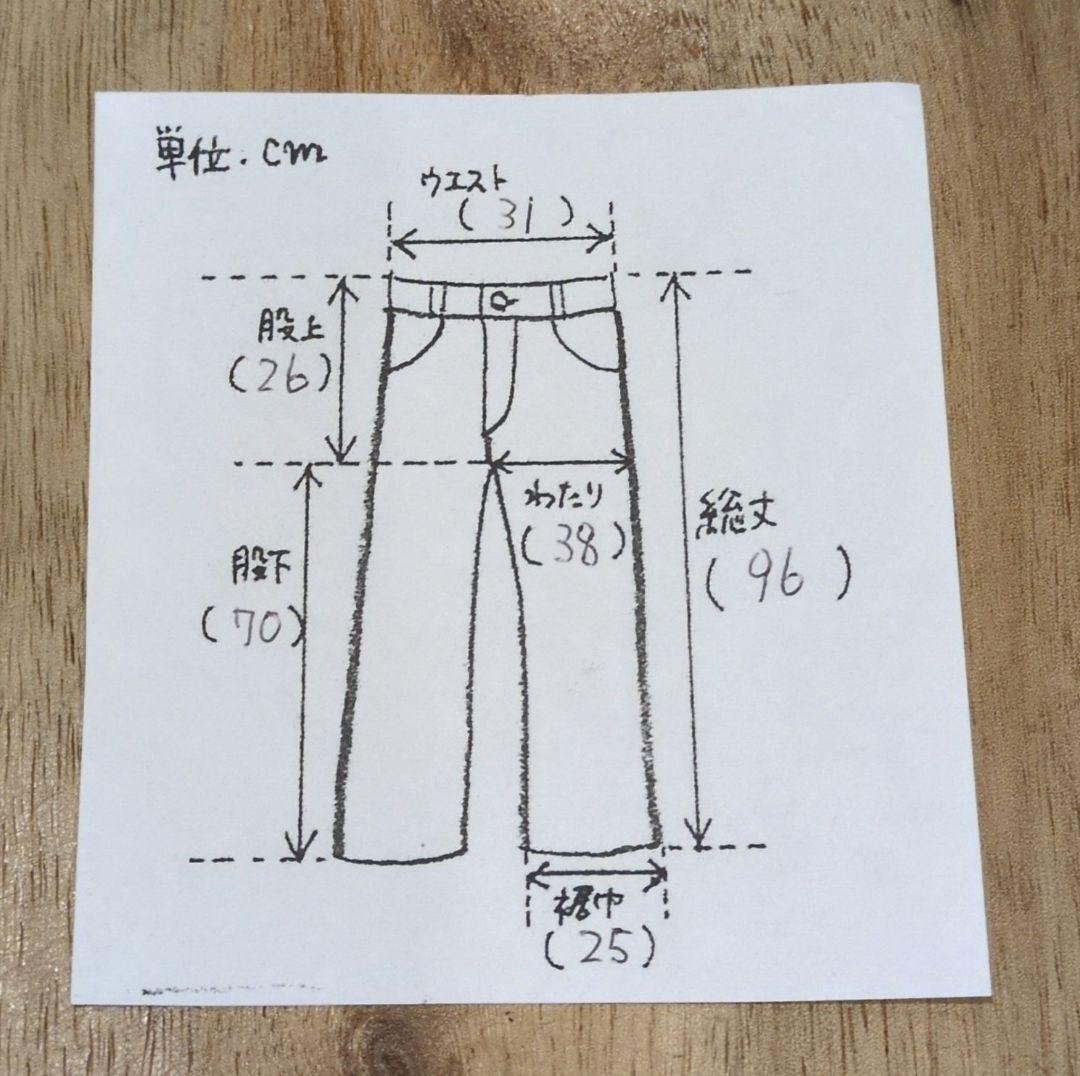 単位.cm
ウエスト
(31)
股上
(26)
わたり
(38)
総丈
(96)
股下
(70)
裾巾
(25)